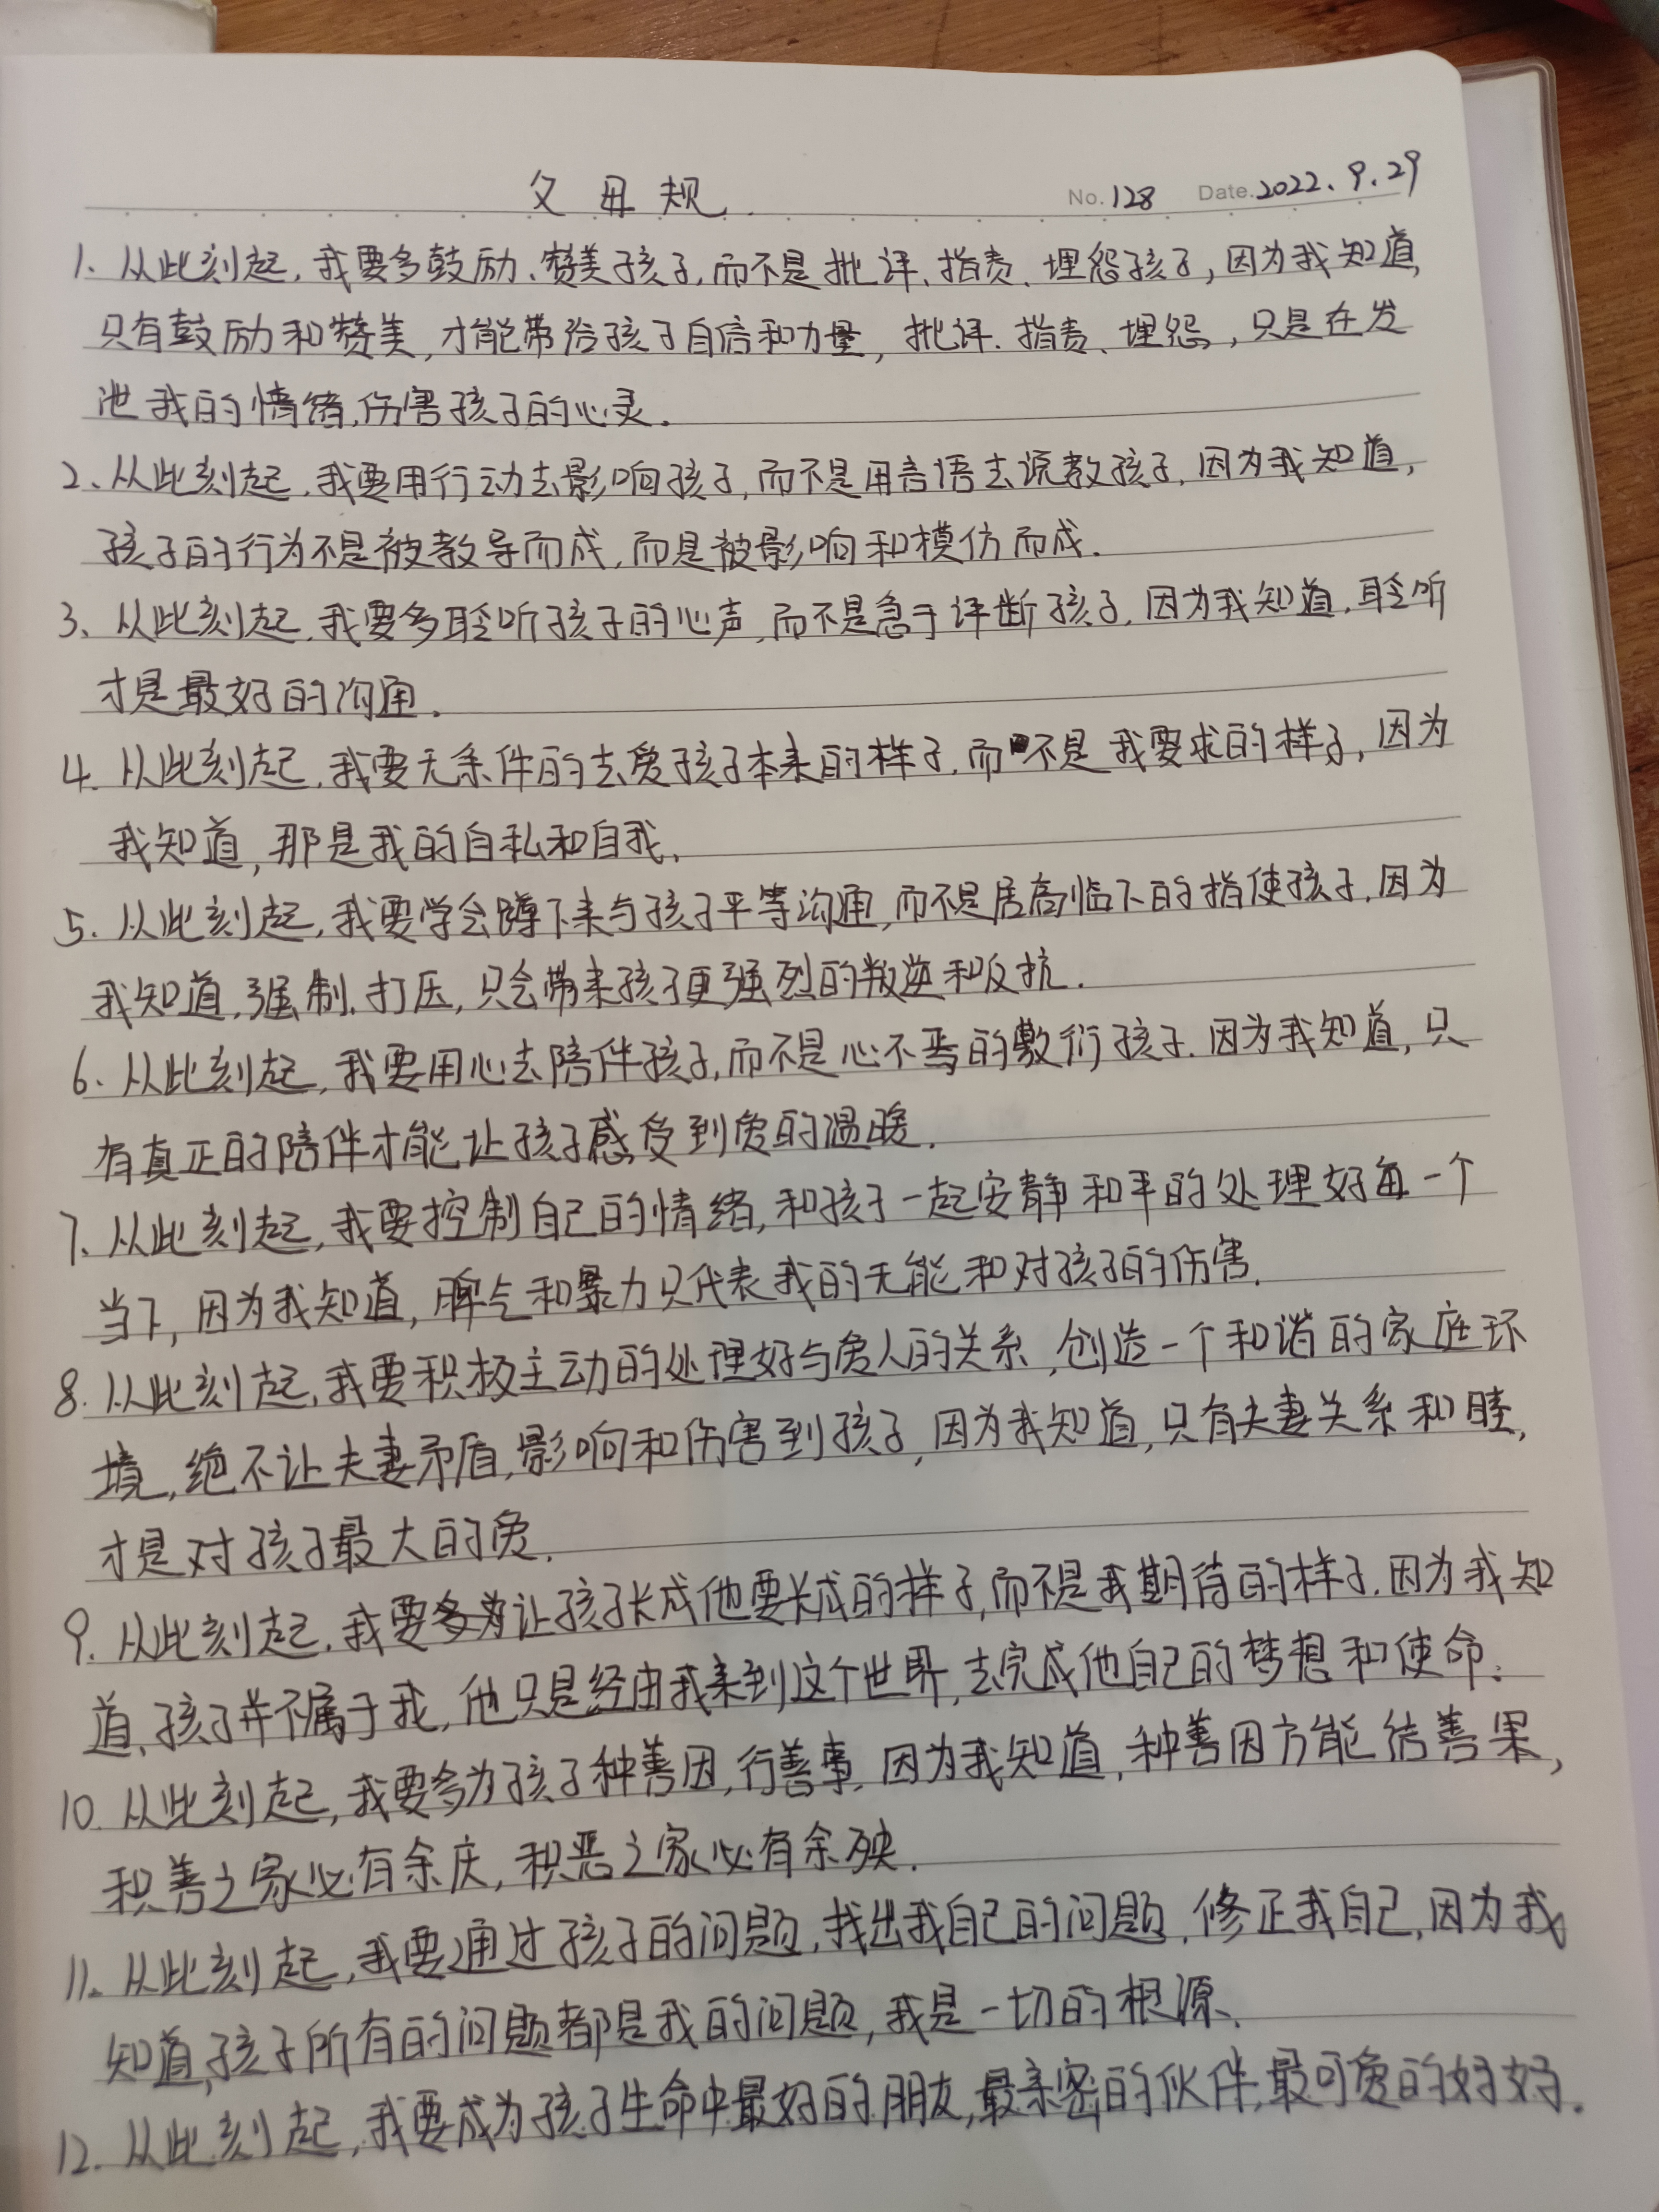 父母规 No.128 Date.2022.9.29
1、从此刻起,我要多鼓励、赞美孩子,而不是批评、指责、埋怨孩子,因为我知道,
只有鼓励和赞美,才能带给孩子自信和力量,批评、指责、埋怨,只是在发
泄我的情绪,伤害孩子的心灵。
2、从此刻起,我要用行动去影响孩子,而不是用言语去说教孩子,因为我知道,
孩子的行为不是被教导而成,而是被影响和模仿而成.
3、从此刻起,我要多聆听孩子的心声,而不是急于评断孩子,因为我知道,聆听
才是最好的沟通。
4、从此刻起,我要无条件的去爱孩子本来的样子,而不是我要求的样子,因为
我知道,那是我的自私和自我。
5、从此刻起,我要学会蹲下来与孩子平等沟通,而不是居高临下的指使孩子,因为
我知道,强制、打压,只会带来孩子更强烈的叛逆和反抗.
6、从此刻起,我要用心去陪伴孩子,而不是心不焉的敷衍孩子.因为我知道,只
有真正的陪伴才能让孩子感受到爱的温暖.
7、从此刻起,我要控制自己的情绪,和孩子一起安静和平的处理好每一个
当下,因为我知道,脾气和暴力只代表我的无能和对孩子的伤害.
8.从此刻起,我要积极主动的处理好与爱人的关系,创造一个和谐的家庭环
境,绝不让夫妻矛盾,影响和伤害到孩子,因为我知道,只有夫妻关系和睦,
才是对孩子最大的爱.
9.从此刻起,我要让孩子长成他要长成的样子,而不是我期待的样子.因为我知
道,孩子并不属于我,他只是经由我来到这个世界,去完成他自己的梦想和使命.
10.从此刻起,我要多为孩子种善因,行善事,因为我知道,种善因方能结善果,
积善之家必有余庆,积恶之家必有余殃.
11、从此刻起,我要通过孩子的问题,找出我自己的问题,修正我自己,因为我
知道,孩子所有的问题都是我的问题,我是一切的根源、
12.从此刻起,我要成为孩子生命中最好的朋友,最亲密的伙伴,最可爱的好好.